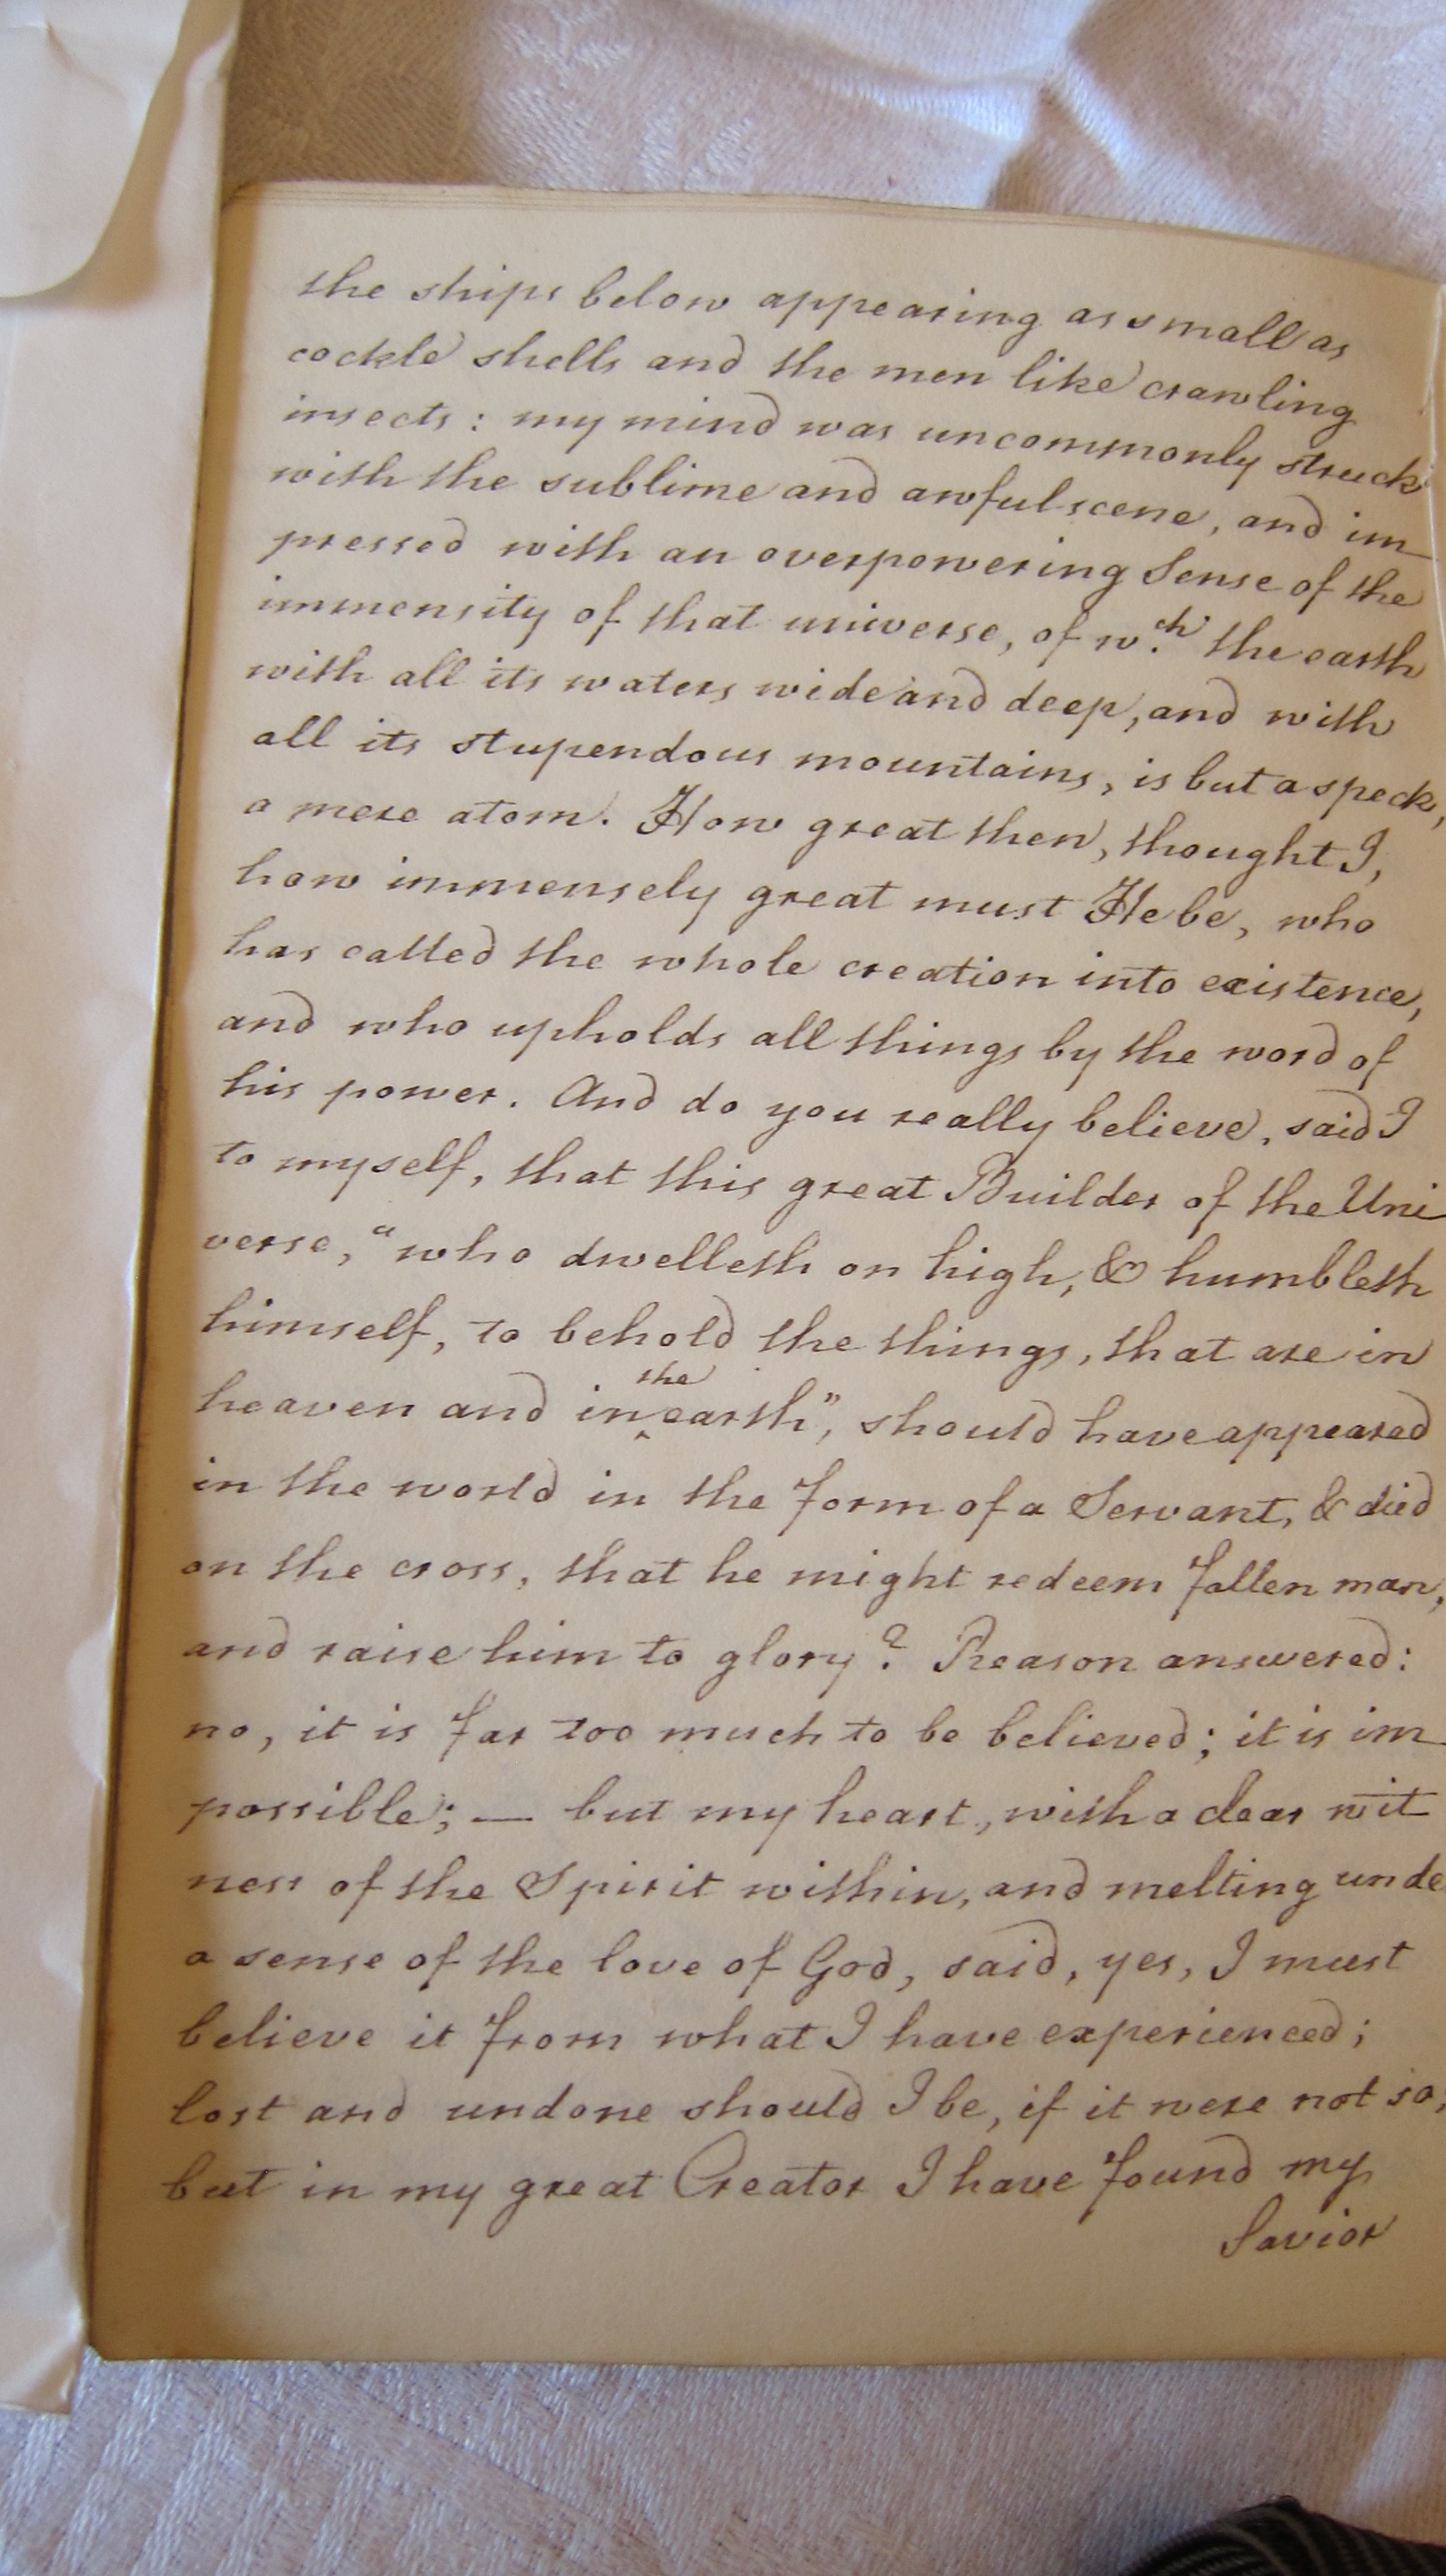 the ships below appearing as small as
cockle shells and the men like crawling
insects: my mind was uncommonly struck
with the sublime and awful scene, and im
pressed with an overpowering Sense of the
immensity of that universe, of wch. the earth
with all its waters wide and deep, and with
all its stupendous mountains, is but a speck,
a mere atom. How great then, thought I,
how immensely great must He be, who
has called the whole creation into existence,
and who upholds all things by the word of
his power. And do you really believe, said I
to myself, that this great Builder of the Uni
verse, "who dwelleth on high, & humbleth
himself, to behold the things, that are in
heaven and in the earth", should have appeared
in the world in the form of a Servant, & died
on the cross, that he might redeem fallen man,
and raise him to glory? Reason answered:
no, it is far too much to be believed; it is im
possible; — but my heart, with a clear wit
ness of the Spirit within, and melting unde
a sense of the love of God, said, yes, I must
believe it from what I have experienced;
lost and undone should I be, if it were not so,
but in my great Creator I have found my
Savior